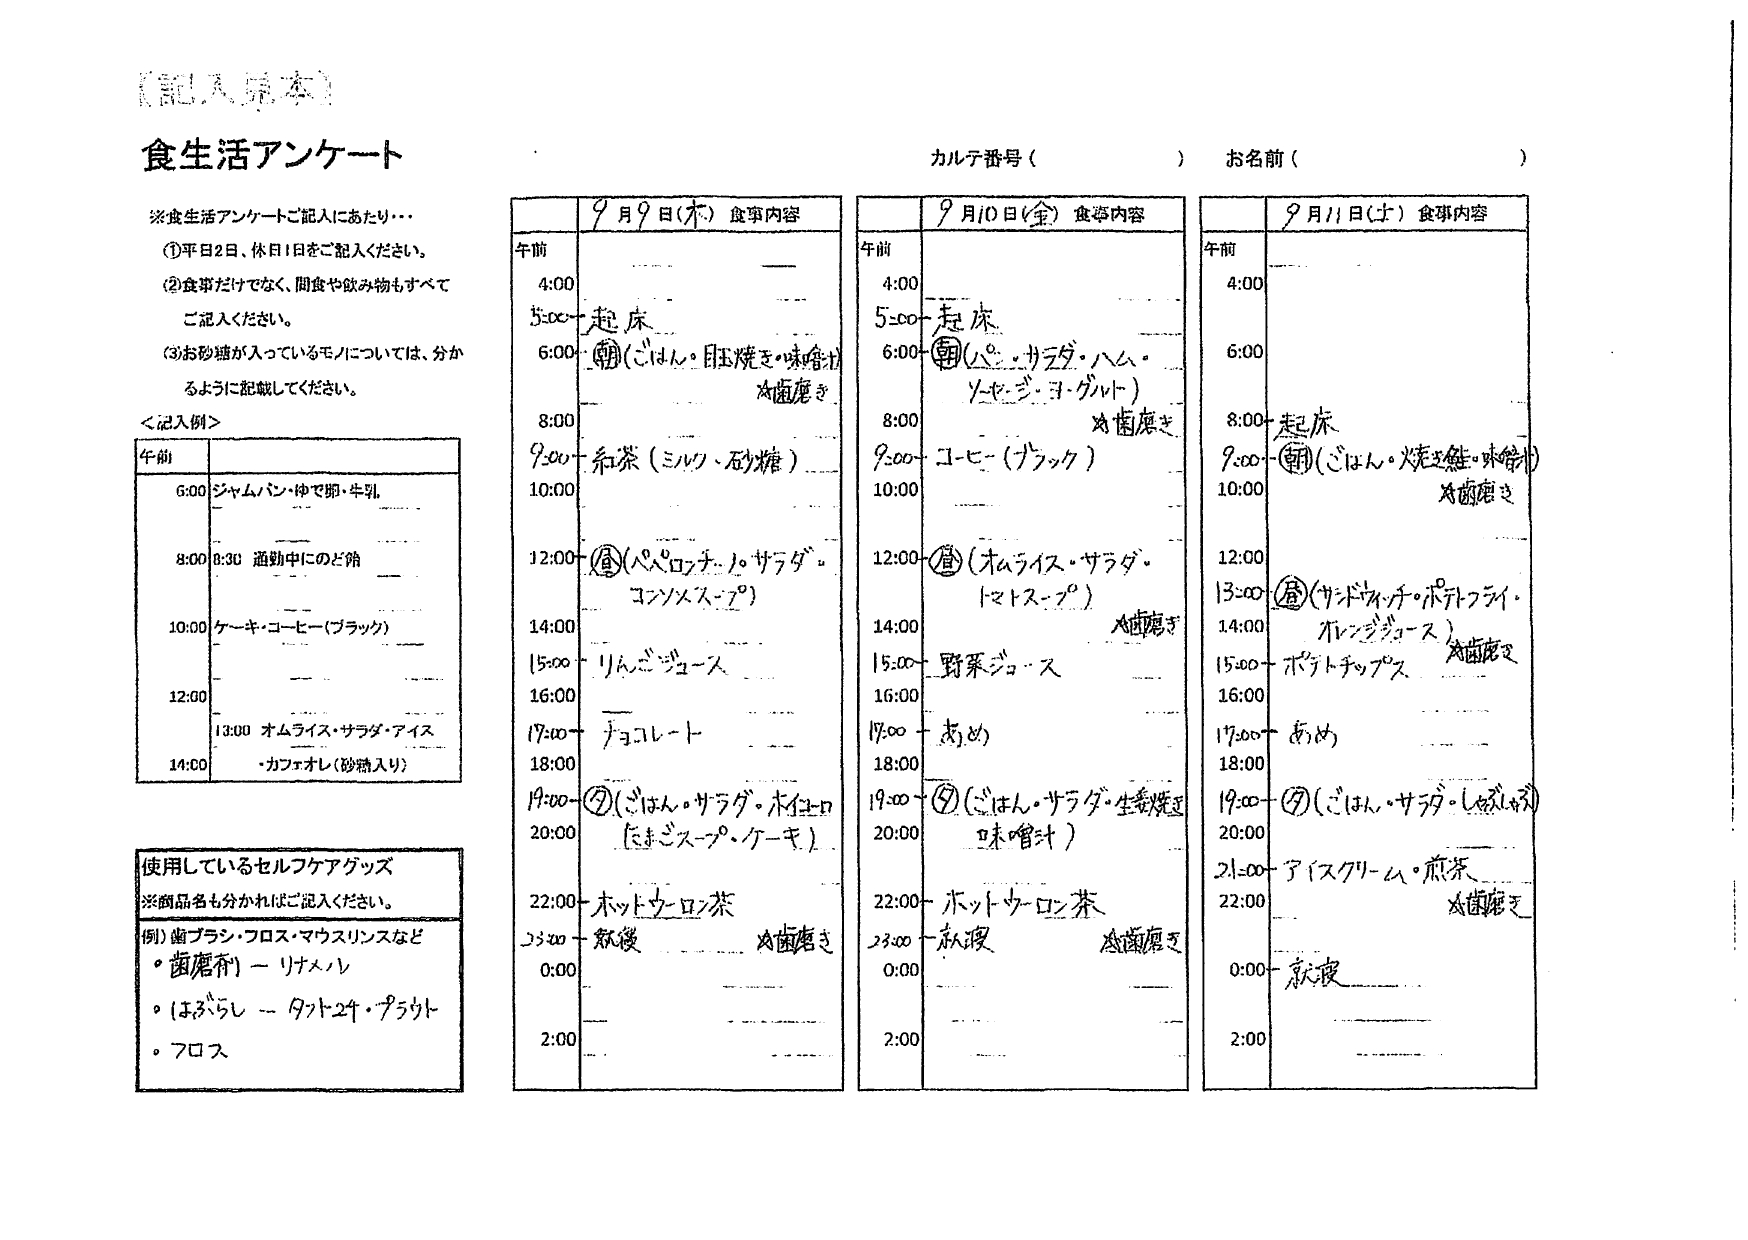 【記入見本】
食生活アンケート
カルテ番号（　　　　　　）　お名前（　　　　　　　　）
※食生活アンケートご記入にあたり・・・
①平日2日、休日1日をご記入ください。
②食事だけでなく、間食や飲み物もすべて
ご記入ください。
③お砂糖が入っているモノについては、分か
るように記載してください。
＜記入例＞
午前
6:00 ジャムパン・ゆで卵・牛乳
8:00 8:30 通勤中にのど飴
10:00 ケーキ・コーヒー(ブラック)
12:00
13:00 オムライス・サラダ・アイス
14:00 ・カフェオレ(砂糖入り)
使用しているセルフケアグッズ
※商品名も分かればご記入ください。
例) 歯ブラシ・フロス・マウスリンスなど
・歯磨剤 ー リナメル
・はぶらし ー タフト24・プラウト
・フロス
9月9日(木) 食事内容
午前
4:00
5:00 起床
6:00 朝(ごはん・目玉焼き・味噌汁)
☆歯磨き
8:00
9:00 紅茶(ミルク・砂糖)
10:00
12:00 昼(ペペロンチーノ・サラダ・
コンソメスープ)
14:00
15:00 りんごジュース
16:00
17:00 チョコレート
18:00
19:00 夕(ごはん・サラダ・ホイコーロ
20:00 たまごスープ・ケーキ)
22:00 ホットウーロン茶
23:00 就後 ☆歯磨き
0:00
2:00
9月10日(金) 食事内容
午前
4:00
5:00 起床
6:00 朝(パン・サラダ・ハム・
ソーセージ・ヨーグルト)
8:00 ☆歯磨き
9:00 コーヒー(ブラック)
10:00
12:00 昼(オムライス・サラダ・
トマトスープ)
14:00 ☆歯磨き
15:00 野菜ジュース
16:00
17:00 あめ
18:00
19:00 夕(ごはん・サラダ・生姜焼き
20:00 味噌汁)
22:00 ホットウーロン茶
23:00 就寝 ☆歯磨き
0:00
2:00
9月11日(土) 食事内容
午前
4:00
6:00
8:00 起床
9:00 朝(ごはん・焼き鮭・味噌汁)
10:00 ☆歯磨き
12:00
13:00 昼(サンドウィッチ・ポテトフライ・
14:00 オレンジジュース)
☆歯磨き
15:00 ポテトチップス
16:00
17:00 あめ
18:00
19:00 夕(ごはん・サラダ・しゃぶしゃぶ)
20:00
21:00 アイスクリーム・煎茶
22:00 ☆歯磨き
0:00 就寝
2:00